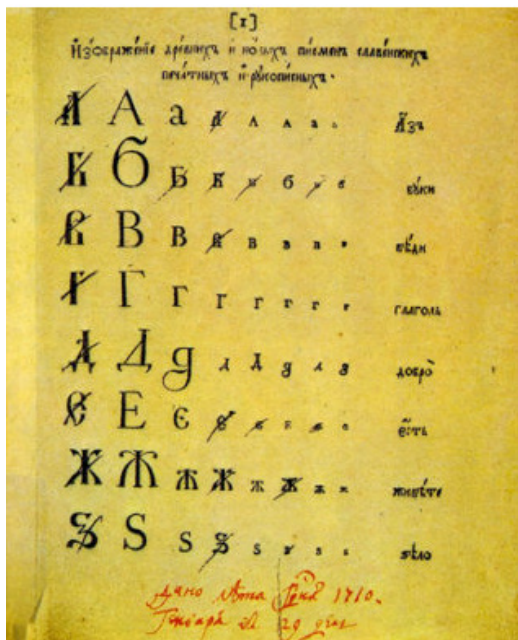 [1]
И҆зѡбраже́нїе дре́внихъ и҆ но́выхъ пи́сменъ славе́нскихъ
печа́тныхъ и҆ рꙋкопи́сныхъ.
А А а А А А а а А҆зъ
Б Б Б Б б в бꙋ́ки
В В В В В в в в вѣ́ди
Г Г Г Г Г Г Г г глаго́ль
Д Д д д Д д д д добро̀
Є Е є є є є є є є҆́сть
Ж Ж ж Ж ж Ж ж ж живѣ́те
Ѕ Ѕ ѕ Ѕ ѕ ѕ ѕ ѕ ѕѣлѡ̀
Дано лѣта 1710.
Генваря 29 дня